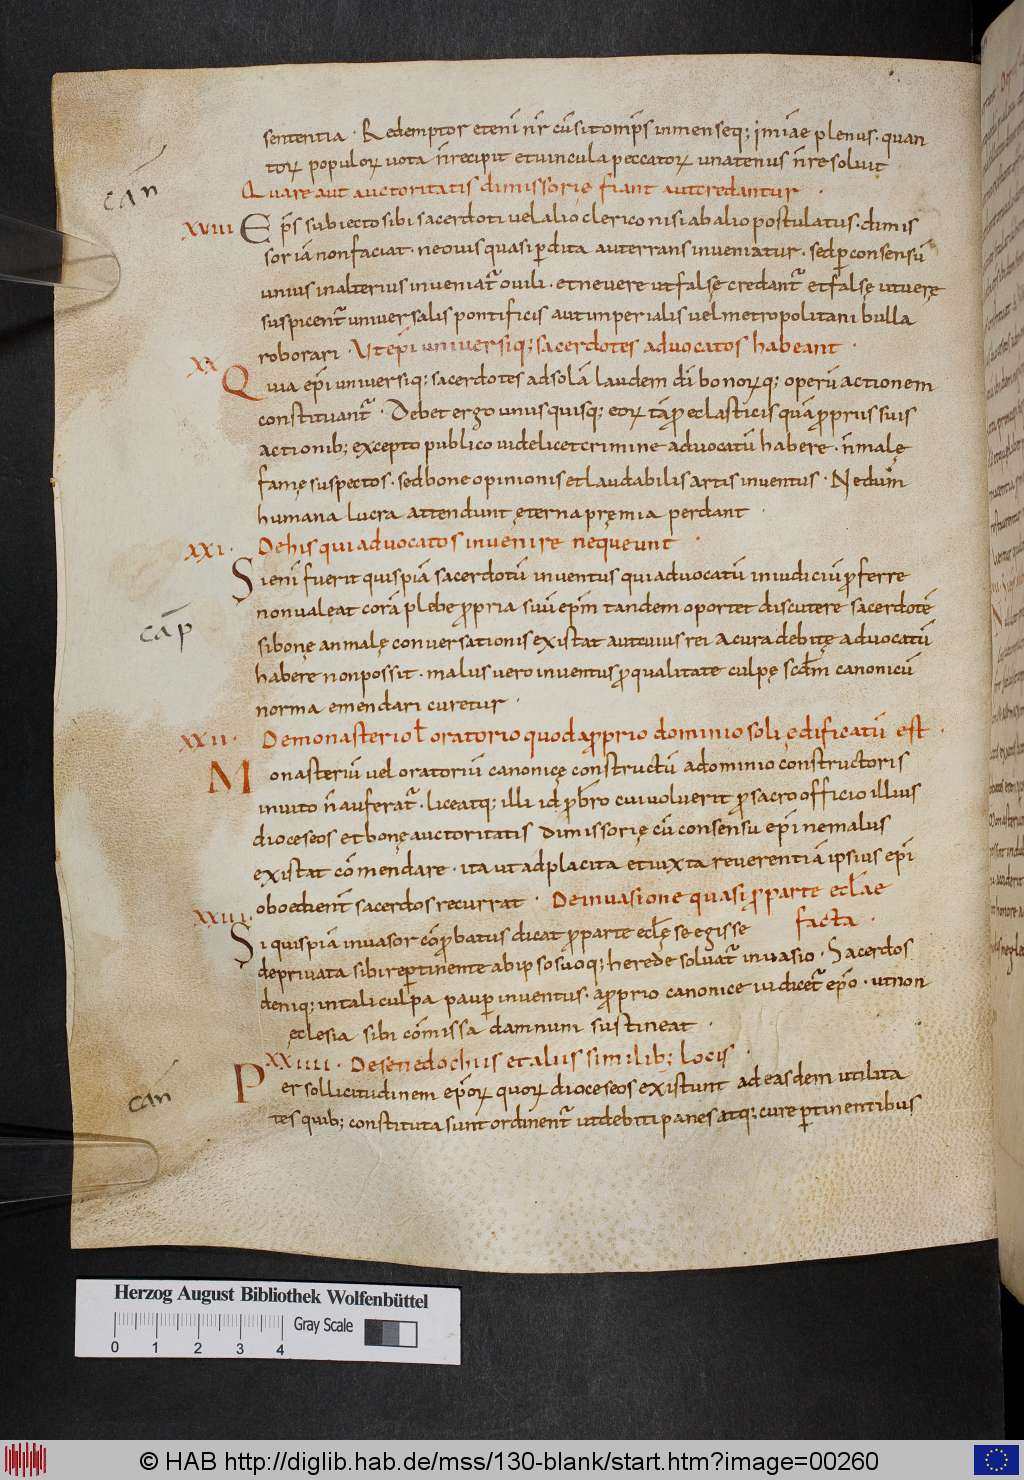 sententia · Redemptor etenī nr̄ cū sit om̄ps inmenseq; im̄iae plenus · quan
torꝝ populorꝝ vota n̄recipit et vincula peccatorꝝ vna tenus n̄resoluit
can
Quare aut auctoritatis dimissorię fiant aut credantur ·
XVIIII Ep̄s subiecto sibi sacerdoti vel alio clerico nisi ab alio postulatus · dimis
soriā non faciat · ne ouis quasi ꝑdita aut errans inueniatur · sed ꝑ consensū
unius in alterius inueniat᷑ ouili · et ne vere ut falsę credant᷑ et falsę ut verę
suspicent᷑ universalis pontificis aut imperialis vel metropolitani bulla
roborari · Ut ep̄i universiq; sacerdotes advocatos habeant ·
XX Quia ep̄i universiq; sacerdotes ad solā laudem dī bonorꝝq; operū actionem
constituant᷑ · Debet ergo unusquisq; eorꝝ tā ꝓ eclasticis quā ꝓpriis suis
actionib; excepto publico videlicet crimine advocatū habere · n̄malę
famę suspectos · sed bone opinionis et laudabilis artis inventus · Ne dum
humana lucra attendunt ęterna pręmia perdant ·
XXI · De his qui advocatos invenire nequeunt ·
Si enī fuerit quispiā sacerdotū inventus qui advocatū in iudiciū ꝓferre
non valeat corā plebe ꝓpria suū ep̄m tandem oportet discutere sacerdotē
cap̄
si bonę an malę conversationis existat aut cuius rei a cura debitę advocatū
habere non possit · malus vero inventus ꝓ qualitate culpę scd̄m canonicū
norma emendari curetur ·
XXII · De monasterio ł oratorio quod a ꝓprio dominio soli ędificatū est ·
Monasteriū vel oratoriū canonicę constructū a dominio constructoris
invito n̄ auferat᷑ · liceatq; illi id p̄rb̄ro cui voluerit ꝓ sacro officio illius
dioceseos et bonę auctoritatis dimissorię cū consensu ep̄i ne malus
existat cōmendare · ita ut ad placita et iuxta reverentiā ipsius ep̄i
oboedient᷑ sacerdos recurrat · De invasione quasi ꝓ parte ecl̄ae
XXIII · facta ·
Si quispiā invasor cōprobatus dicat ꝓ parte ecl̄ę se egisse
de privata sibi re ꝑtinente ab ipso suoq; herede solvat᷑ invasio · Sacerdos
deniq; in tali culpa pauꝑ inventus · a ꝓprio canonice iudicet᷑ ep̄o · ut non
ęclesia sibi cōmissa damnum sustineat ·
XXIIII · De senedochiis et aliis similib; locis ·
can
Per sollicitudinem ep̄orꝝ quorꝝ dioceseos existunt ad easdem utilita
tes quib; constituta sunt ordinent᷑ ut debiti panes atq; cure ꝑtinentibus
Herzog August Bibliothek Wolfenbüttel
Gray Scale
0 1 2 3 4
© HAB http://diglib.hab.de/mss/130-blank/start.htm?image=00260